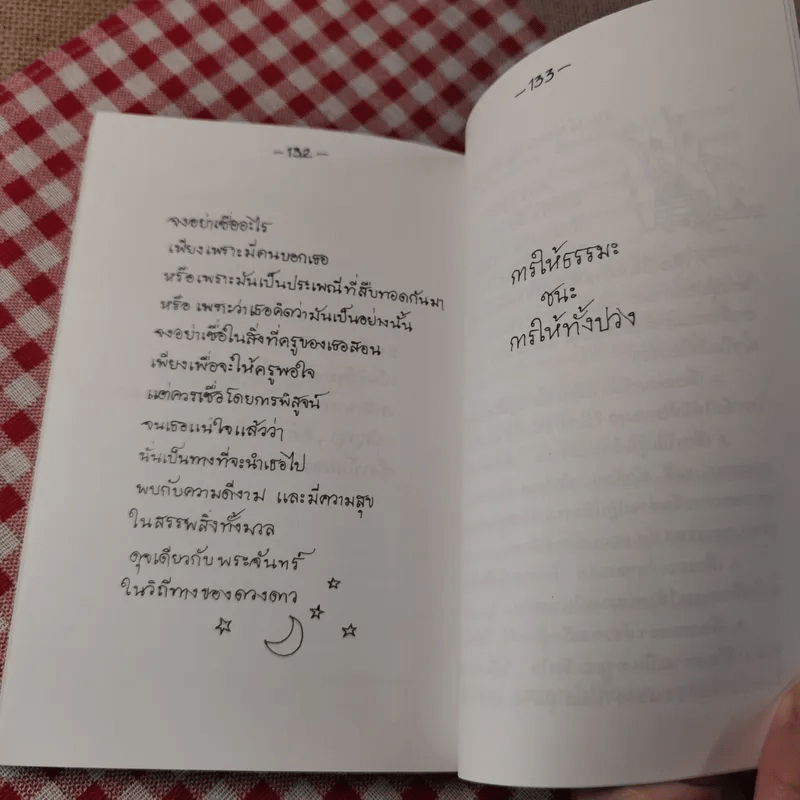 -132-
จงอย่าเชื่ออะไร
เพียงเพราะมีคนบอกเธอ
หรือเพราะมันเป็นประเพณีที่สืบทอดกันมา
หรือ เพราะว่าเธอคิดว่ามันเป็นอย่างนั้น
จงอย่าเชื่อในสิ่งที่ครูของเธอสอน
เพียงเพื่อจะให้ครูพอใจ
แต่ควรเชื่อโดยการพิสูจน์
จนเธอแน่ใจแล้วว่า
นั่นเป็นทางที่จะนำเธอไป
พบกับความดีงาม และมีความสุข
ในสรรพสิ่งทั้งมวล
ดุจเดียวกับพระจันทร์
ในวิถีทางของดวงดาว
-133-
การให้ธรรมะ
ชนะ
การให้ทั้งปวง